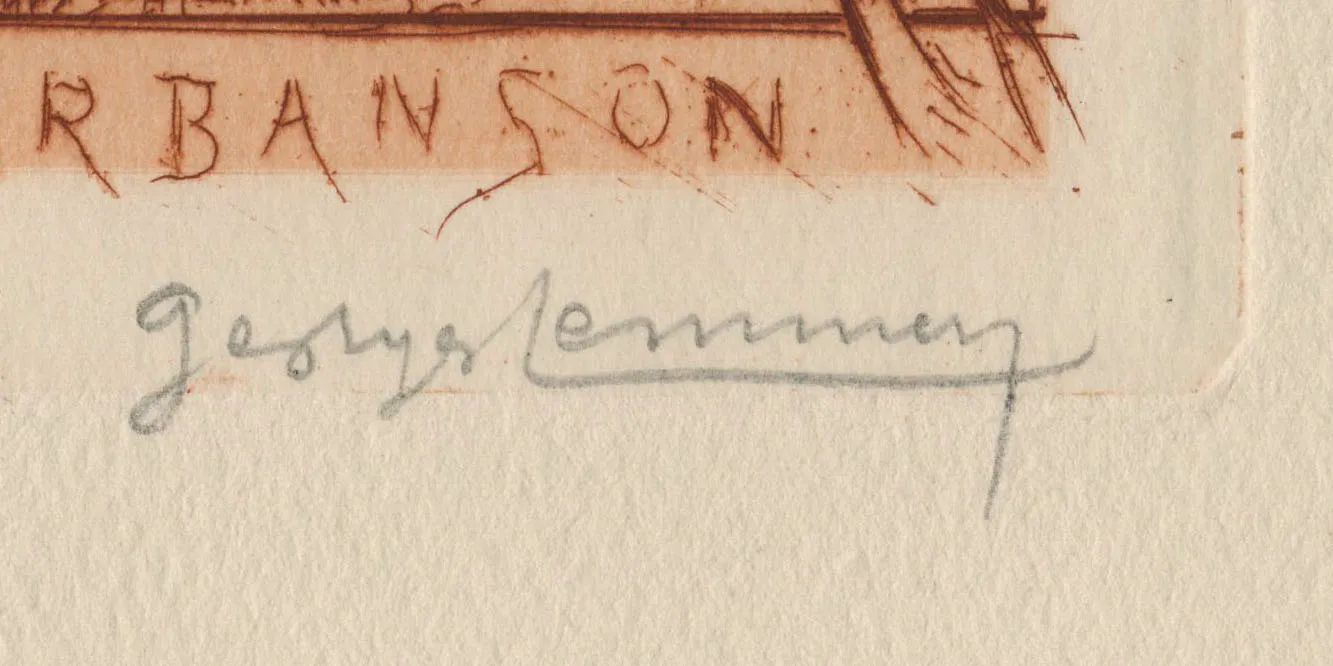 RBANSON
Georges Lemmen